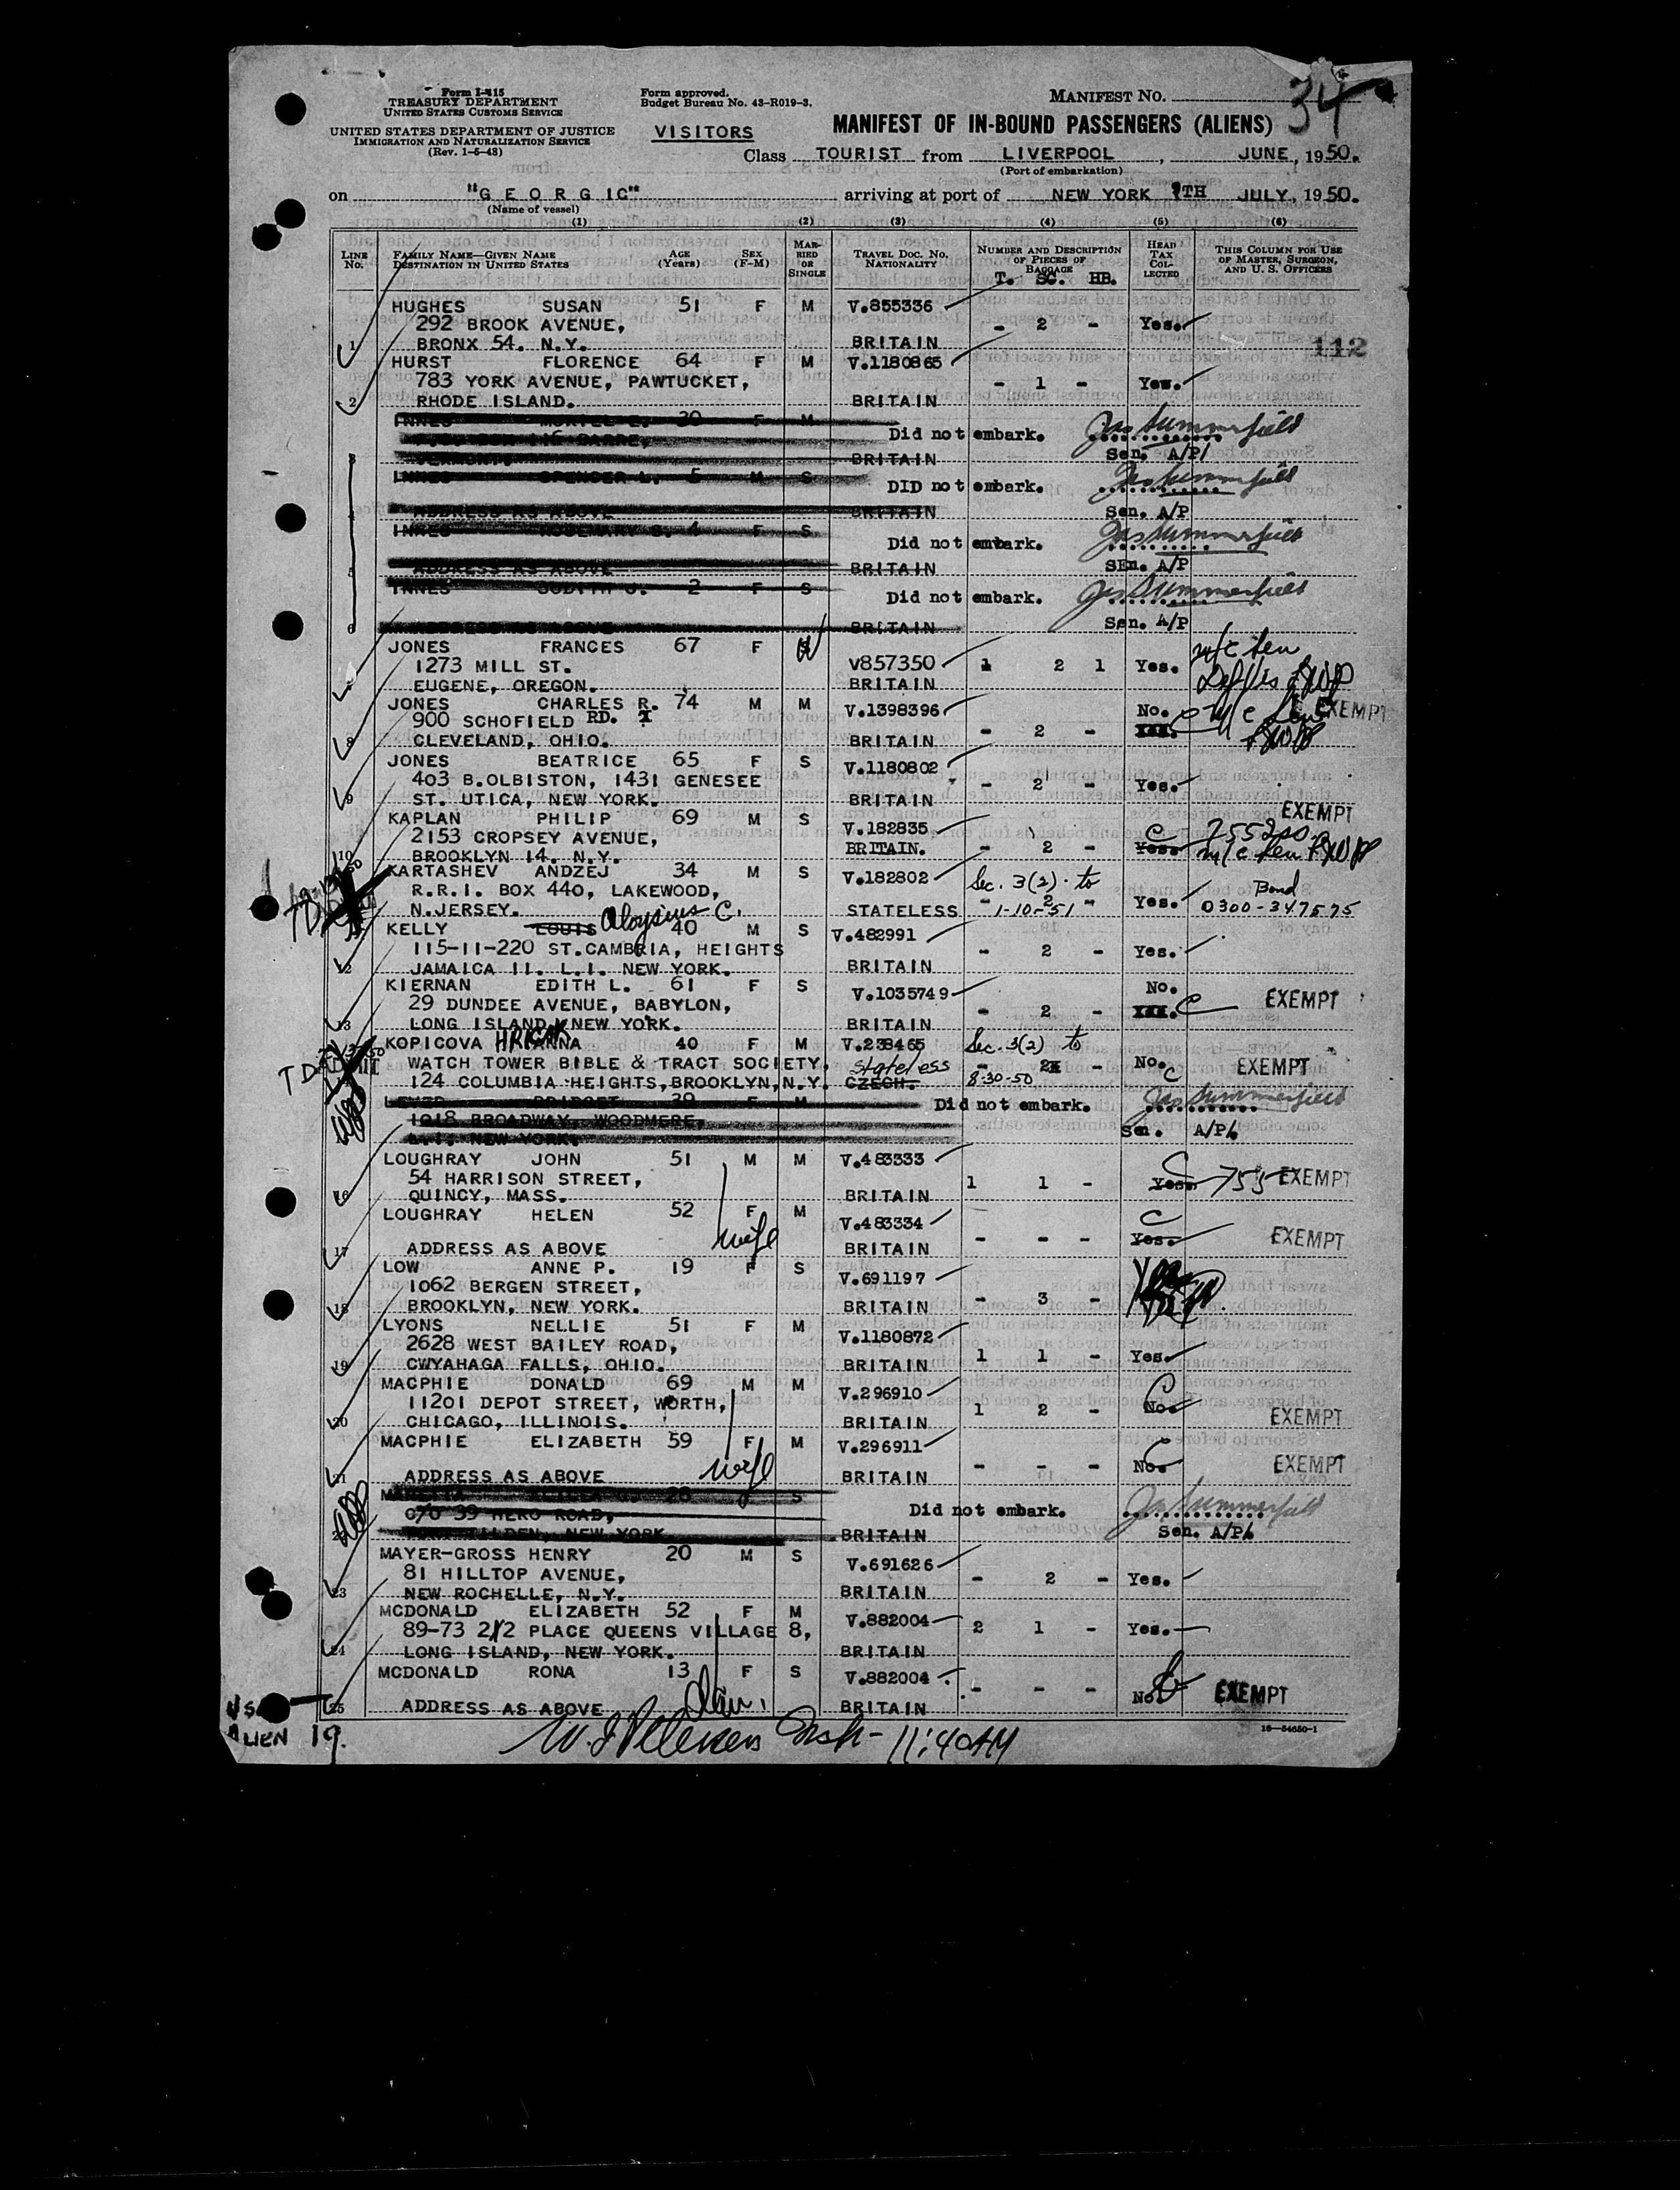 Form I-415
TREASURY DEPARTMENT
UNITED STATES CUSTOMS SERVICE
UNITED STATES DEPARTMENT OF JUSTICE
IMMIGRATION AND NATURALIZATION SERVICE
(Rev. 1-5-48)
Form approved.
Budget Bureau No. 43-R019-3.
VISITORS
MANIFEST NO. 34
MANIFEST OF IN-BOUND PASSENGERS (ALIENS)
Class TOURIST from LIVERPOOL, JUNE, 1950.
(Port of embarkation)
on "GEORGIC" arriving at port of NEW YORK TH JULY, 1950.
(Name of vessel)
(1) (2) (3) (4) (5) (6)
LINE No. FAMILY NAME—GIVEN NAME DESTINATION IN UNITED STATES AGE (Years) SEX (F-M) MARRIED OR SINGLE TRAVEL DOC. NO. NATIONALITY NUMBER AND DESCRIPTION OF PIECES OF BAGGAGE HEAD TAX COLLECTED THIS COLUMN FOR USE OF MASTER, SURGEON, AND U. S. OFFICERS
T. SC. HB.
HUGHES SUSAN 51 F M V.855336
292 BROOK AVENUE, - 2 - Yes.
1 BRONX 54. N.Y. BRITAIN 112
HURST FLORENCE 64 F M V.1180865
783 YORK AVENUE, PAWTUCKET, - 1 - Yes.
2 RHODE ISLAND. BRITAIN
INNES MURIEL E. 30 F M
Did not embark. Jas Summerfield
3 VERMONT. BRITAIN Sen. A/P/
INNES SPENCER L. 5 M S
DID not embark. Jas Summerfield
4 ADDRESS AS ABOVE BRITAIN Sen. A/P
INNES ROSEMARY S. 4 F S
Did not embark. Jas Summerfield
5 ADDRESS AS ABOVE BRITAIN SEn. A/P
INNES JUDITH J. 2 F S
Did not embark. Jas Summerfield
6 ADDRESS AS ABOVE BRITAIN Sen. A/P
JONES FRANCES 67 F W
1273 MILL ST. V857350 1 2 1 Yes.
EUGENE, OREGON. BRITAIN
JONES CHARLES R. 74 M M V.1398396 No. EXEMPT
900 SCHOFIELD RD. - 2 -
8 CLEVELAND, OHIO. BRITAIN
JONES BEATRICE 65 F S V.1180802
403 B.OLBISTON, 1431 GENESEE - 2 - Yes.
9 ST. UTICA, NEW YORK. BRITAIN
KAPLAN PHILIP 69 M S V.182835 EXEMPT
2153 CROPSEY AVENUE, BRITAIN. - 2 - Yes. C
10 BROOKLYN 14. N.Y.
KARTASHEV ANDZEJ 34 M S V.182802 Sec. 3(2). to Bond
R.R.I. BOX 440, LAKEWOOD, - 2 - Yes. 0300-347575
N.JERSEY. STATELESS 1-10-51
KELLY LOUIS Aloysius C. 40 M S V.482991
115-11-220 ST.CAMBRIA, HEIGHTS - 2 - Yes.
12 JAMAICA 11. L.I. NEW YORK. BRITAIN
KIERNAN EDITH L. 61 F S V.1035749 No.
29 DUNDEE AVENUE, BABYLON, - 2 - C EXEMPT
13 LONG ISLAND, NEW YORK. BRITAIN
KOPICOVA 40 F M V.238465 Sec. 3(2) to
WATCH TOWER BIBLE & TRACT SOCIETY, Stateless - 2 - No. C EXEMPT
124 COLUMBIA HEIGHTS, BROOKLYN, N.Y. CZECH. 8-30-50
BRIDGET 39 F M Did not embark. Jas Summerfield
1018 BROADWAY, WOODMERE, Sen. A/P.
L.I. NEW YORK.
LOUGHRAY JOHN 51 M M V.483333
54 HARRISON STREET, 1 1 - Yes. C 755 EXEMPT
16 QUINCY, MASS. BRITAIN
LOUGHRAY HELEN 52 F M V.483334 C
wife - - - Yes. EXEMPT
17 ADDRESS AS ABOVE BRITAIN
LOW ANNE P. 19 F S V.691197
1062 BERGEN STREET, - 3 -
18 BROOKLYN, NEW YORK. BRITAIN
LYONS NELLIE 51 F M V.1180872
2628 WEST BAILEY ROAD, 1 1 - Yes.
19 CWYAHAGA FALLS, OHIO. BRITAIN
MACPHIE DONALD 69 M M V.296910 C
11201 DEPOT STREET, WORTH, 1 2 - No. EXEMPT
20 CHICAGO, ILLINOIS. BRITAIN
MACPHIE ELIZABETH 59 F M V.296911 C
wife - - - No. EXEMPT
21 ADDRESS AS ABOVE BRITAIN
28 S
C/O 39 HERO ROAD, Did not embark. Jas Summerfield
22 TILDEN, NEW YORK BRITAIN Sen. A/P.
MAYER-GROSS HENRY 20 M S V.691626
81 HILLTOP AVENUE, - 2 - Yes.
23 NEW ROCHELLE, N.Y. BRITAIN
MCDONALD ELIZABETH 52 F M V.882004
89-73 212 PLACE QUEENS VILLAGE 8, 2 1 - Yes.
24 LONG ISLAND, NEW YORK. BRITAIN
MCDONALD RONA 13 F S V.882004
Dau. - - - No. EXEMPT
25 ADDRESS AS ABOVE BRITAIN
ALIEN 19. 11:40AM
16—54650-1